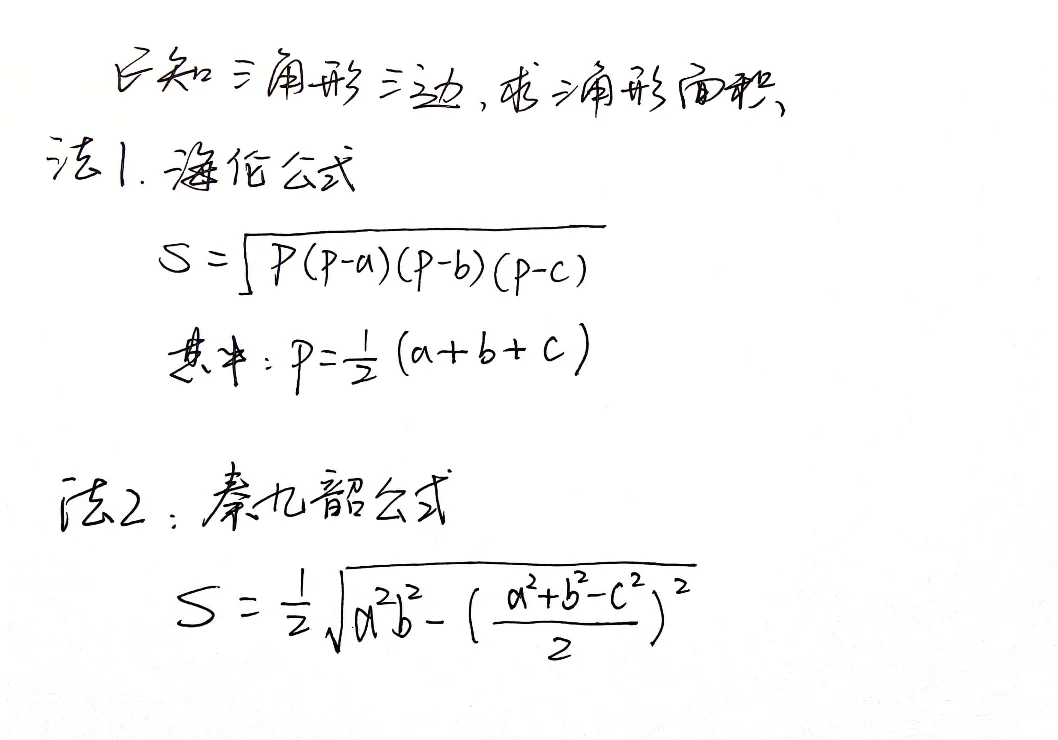 已知三角形三边,求三角形面积,
法1.海伦公式
S=√(P(P-a)(P-b)(P-c))
其中:P=1/2(a+b+c)
法2:秦九韶公式
S=1/2√(a²b²-((a²+b²-c²)/2)²)